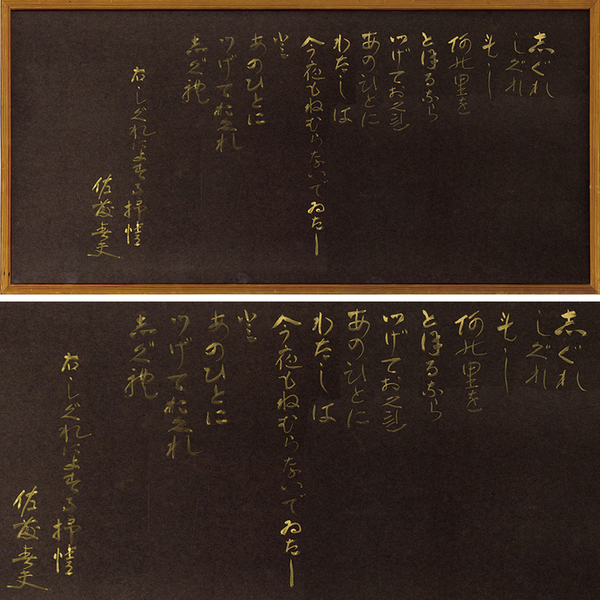 しぐれ
しぐれ
もし
あの里を
とほるなら
つげておくれ
あのひとに
わたしは
今夜もねむらないでゐた—
と
あのひとに
つげておくれ
しぐれ
右しぐれによする抒情
佐藤春夫
しぐれ
しぐれ
もし
あの里を
とほるなら
つげておくれ
あのひとに
わたしは
今夜もねむらないでゐた—
と
あのひとに
つげておくれ
しぐれ
右しぐれによする抒情
佐藤春夫